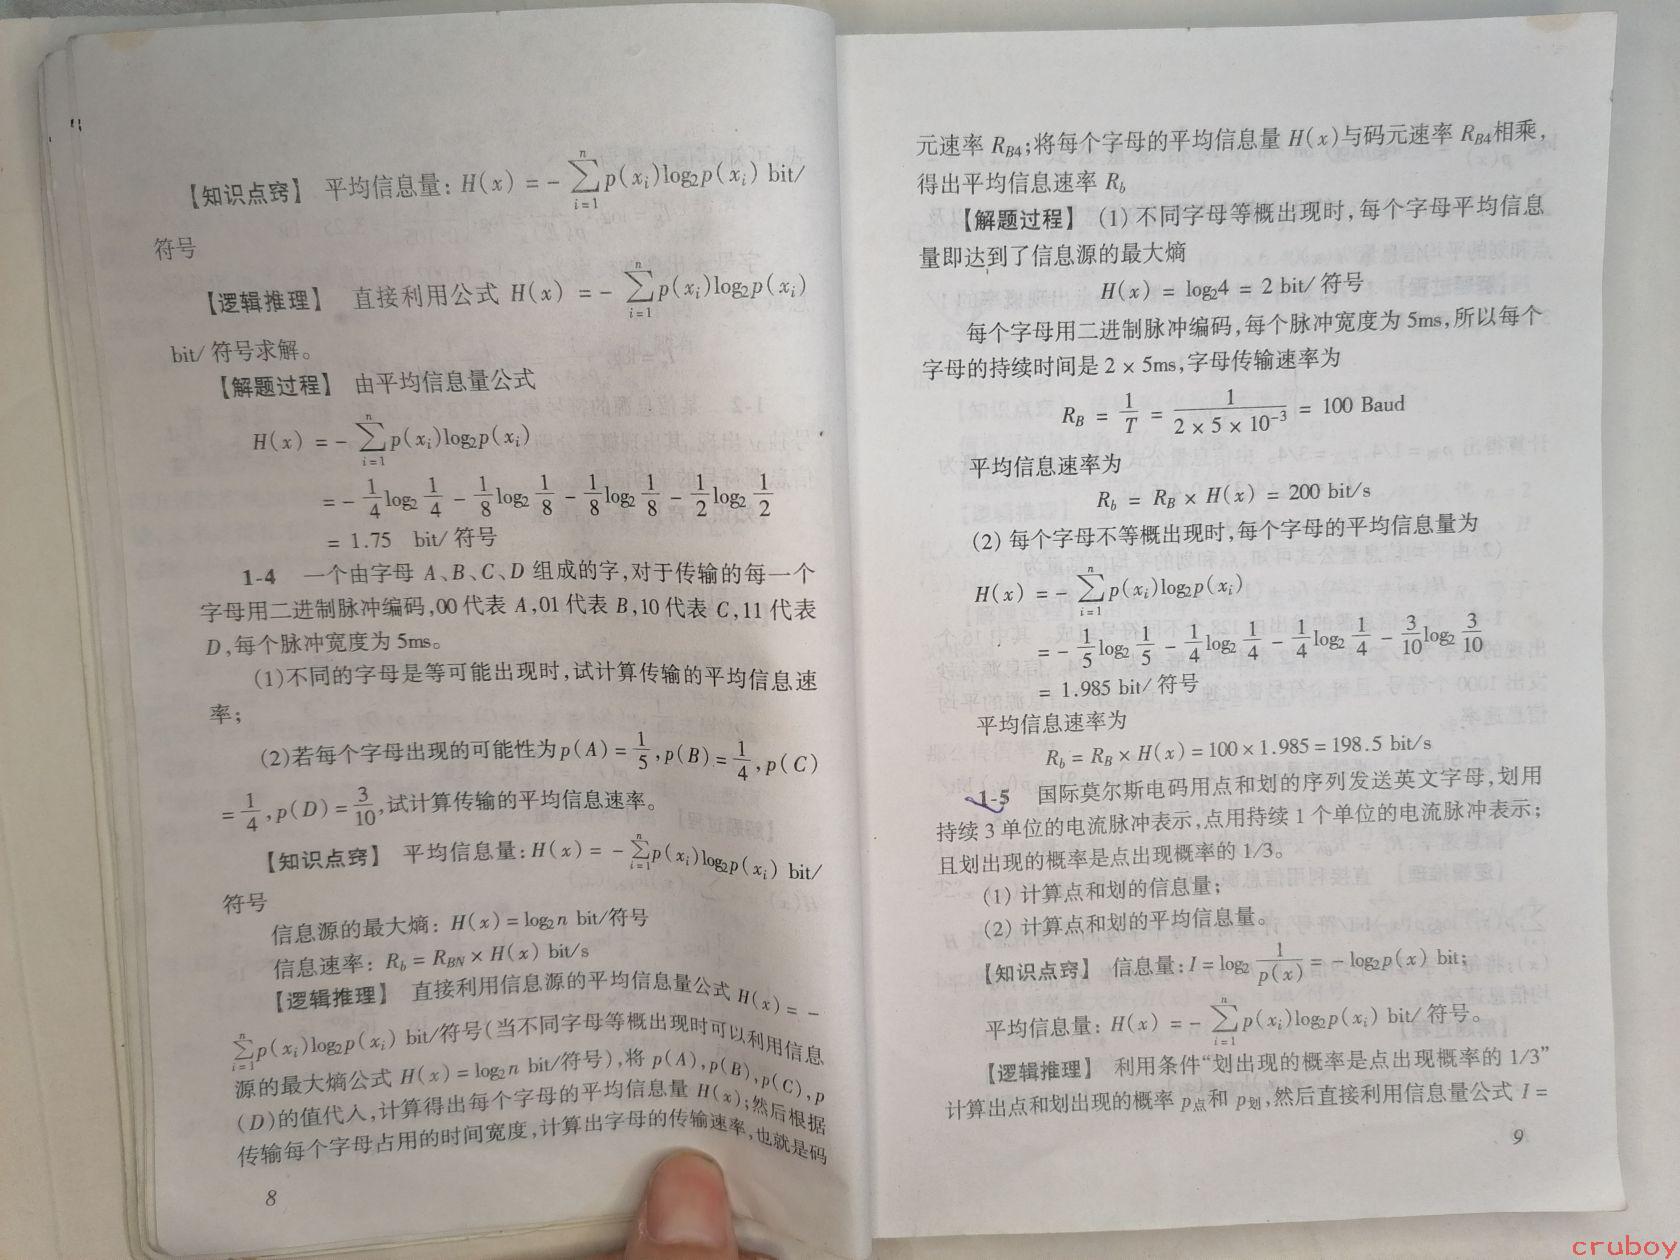 【知识点窍】 平均信息量: H(x) = - \sum_{i=1}^{n} p(x_i)log₂p(x_i) bit/
符号
【逻辑推理】 直接利用公式 H(x) = - \sum_{i=1}^{n} p(x_i)log₂p(x_i)
bit/ 符号求解。
【解题过程】 由平均信息量公式
H(x) = - \sum_{i=1}^{n} p(x_i)log₂p(x_i)
= - \frac{1}{4}log₂\frac{1}{4} - \frac{1}{8}log₂\frac{1}{8} - \frac{1}{8}log₂\frac{1}{8} - \frac{1}{2}log₂\frac{1}{2}
= 1.75 bit/ 符号
1-4 一个由字母 A、B、C、D 组成的字,对于传输的每一个
字母用二进制脉冲编码,00 代表 A,01 代表 B,10 代表 C,11 代表
D,每个脉冲宽度为 5ms。
(1)不同的字母是等可能出现时,试计算传输的平均信息速
率;
(2)若每个字母出现的可能性为 p(A) = \frac{1}{5}, p(B) = \frac{1}{4}, p(C)
= \frac{1}{4}, p(D) = \frac{3}{10},试计算传输的平均信息速率。
【知识点窍】 平均信息量: H(x) = - \sum_{i=1}^{n} p(x_i)log₂p(x_i) bit/
符号
信息源的最大熵: H(x) = log₂n bit/符号
信息速率: R_b = R_{BN} × H(x) bit/s
【逻辑推理】 直接利用信息源的平均信息量公式 H(x) = -
\sum_{i=1}^{n} p(x_i)log₂p(x_i) bit/符号(当不同字母等概出现时可以利用信息
源的最大熵公式 H(x) = log₂n bit/符号),将 p(A),p(B),p(C),p
(D)的值代人,计算得出每个字母的平均信息量 H(x);然后根据
传输每个字母占用的时间宽度,计算出字母的传输速率,也就是码
8
元速率 R_{B4};将每个字母的平均信息量 H(x)与码元速率 R_{B4}相乘,
得出平均信息速率 R_b
【解题过程】 (1) 不同字母等概出现时,每个字母平均信息
量即达到了信息源的最大熵
H(x) = log₂4 = 2 bit/ 符号
每个字母用二进制脉冲编码,每个脉冲宽度为 5ms,所以每个
字母的持续时间是 2 × 5ms,字母传输速率为
R_B = \frac{1}{T} = \frac{1}{2 × 5 × 10^{-3}} = 100 Baud
平均信息速率为
R_b = R_B × H(x) = 200 bit/s
(2) 每个字母不等概出现时,每个字母的平均信息量为
H(x) = - \sum_{i=1}^{n} p(x_i)log₂p(x_i)
= - \frac{1}{5}log₂\frac{1}{5} - \frac{1}{4}log₂\frac{1}{4} - \frac{1}{4}log₂\frac{1}{4} - \frac{3}{10}log₂\frac{3}{10}
= 1.985 bit/ 符号
平均信息速率为
R_b = R_B × H(x) = 100 × 1.985 = 198.5 bit/s
1-5 国际莫尔斯电码用点和划的序列发送英文字母,划用
持续 3 单位的电流脉冲表示,点用持续 1 个单位的电流脉冲表示;
且划出现的概率是点出现概率的 1/3。
(1) 计算点和划的信息量;
(2) 计算点和划的平均信息量。
【知识点窍】 信息量: I = log₂\frac{1}{p(x)} = - log₂p(x) bit;
平均信息量: H(x) = - \sum_{i=1}^{n} p(x_i)log₂p(x_i) bit/ 符号。
【逻辑推理】 利用条件“划出现的概率是点出现概率的 1/3”
计算出点和划出现的概率 p点和 p划,然后直接利用信息量公式 I =
9
cruboy